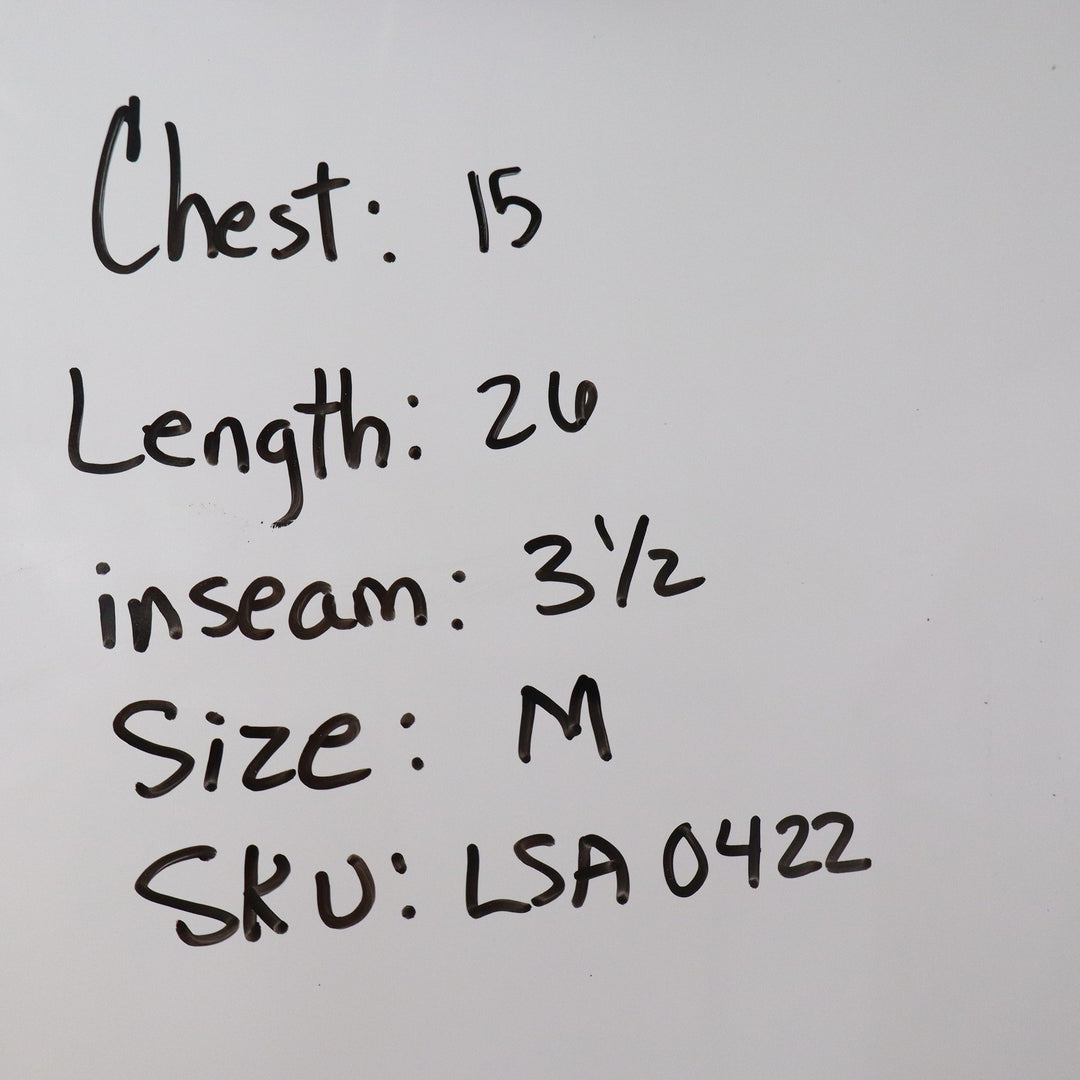 Chest: 15
Length: 26
inseam: 3 1/2
Size: M
SKU: LSA 0422